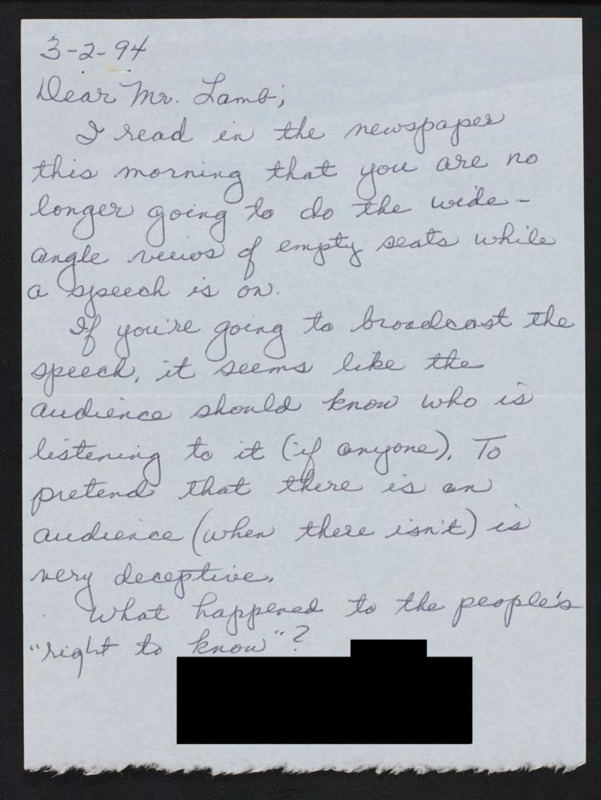 3-2-94
Dear Mr. Lamb;
I read in the newspaper
this morning that you are no
longer going to do the wide-
angle views of empty seats while
a speech is on.
If you're going to broadcast the
speech, it seems like the
audience should know who is
listening to it (if anyone). To
pretend that there is an
audience (when there isn't) is
very deceptive.
What happened to the people's
"right to know"?